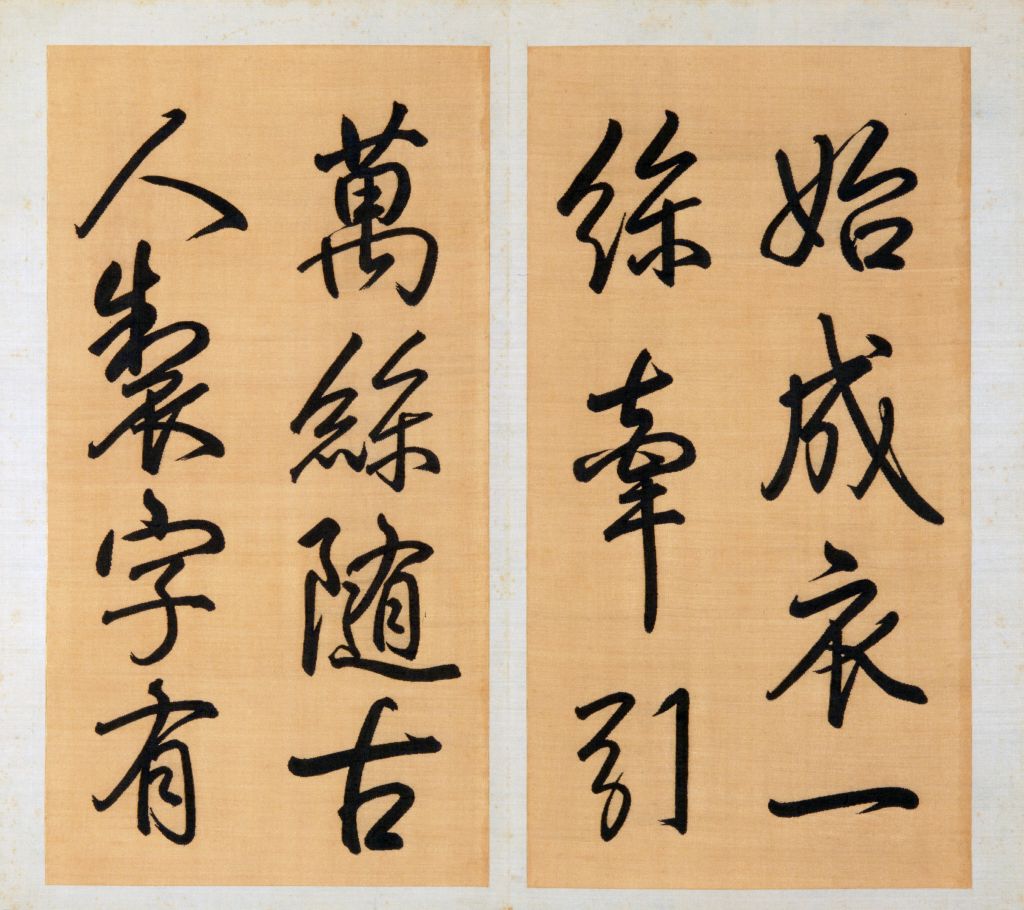 始成衣一
絲牽引
萬絲隨古
人製字有